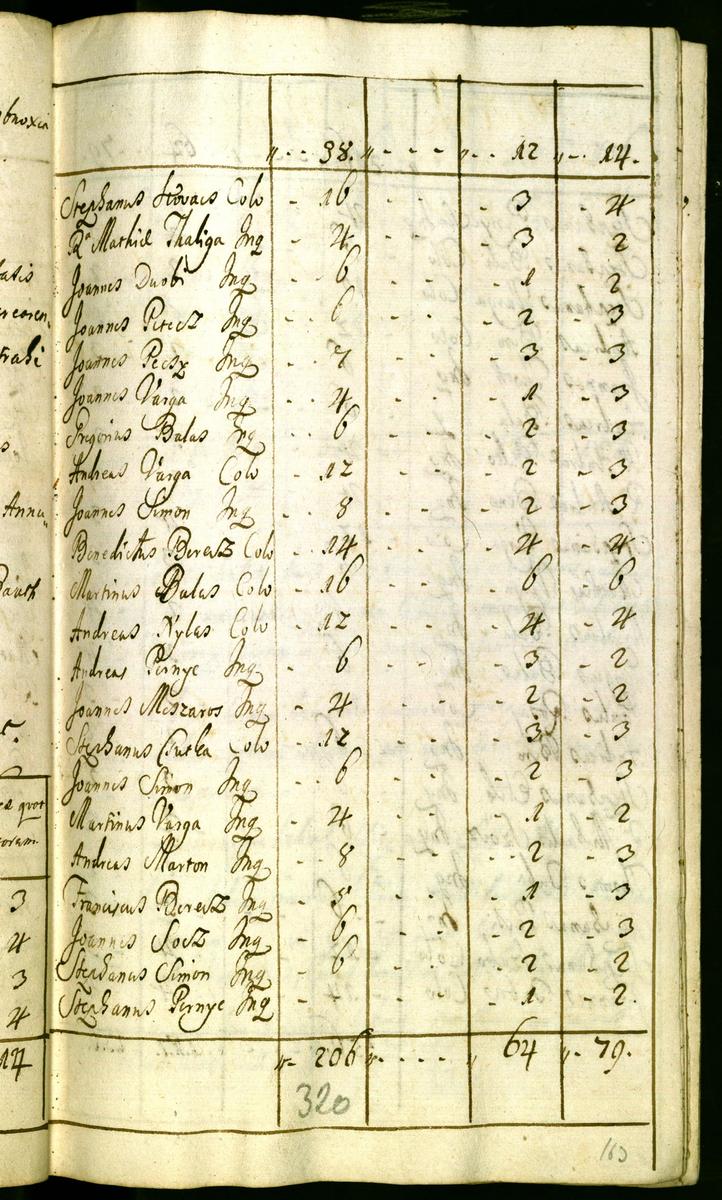 bnoxia
" - - 38. " - - - - " - - 12 " - - 14.
Stephanus Kovacs Colo - 16 - - - - 3 - 4
Rta Mathiæ Thaliga Inq - 4 - - - - 3 - 2
Joannes Darbi Inq - - 6 - - - - 1 - 2
Joannes Peresz Inq - - 6 - - - - 2 - 3
Joannes Pecsz Inq - - 7 - - - - 3 - 3
Joannes Varga Inq - - 4 - - - - 1 - 3
Gregorius Balas Inq - - 6 - - - - 2 - 3
Andreas Varga Colo - - 12 - - - - 2 - 3
Joannes Simon Inq - 8 - - - - 2 - 3
Benedictus Beresz Colo - 14 - - - - 4 - 4
Martinus Balas Colo - 16 - - - - 6 - 6
Andreas Nylas Colo - 12 - - - - 4 - 4
Andreas Pernye Inq - 6 - - - - 3 - 2
Joannes Meszaros Inq - 4 - - - - 2 - 2
Stephanus Csutka Colo - 12 - - - - 3 - 3
Joannes Simon Inq - - 6 - - - - 2 - 3
Martinus Varga Inq - 4 - - - - 1 - 2
Andreas Marton Inq - 8 - - - - 2 - 3
Franciscus Beresz Inq - 5 - - - - 1 - 3
Joannes Socz Inq - 6 - - - - 2 - 3
Stephanus Simon Inq - 6 - - - - 2 - 2
Stephanus Pernye Inq - - - - - - 1 - 2.
" - 206 " - - - - " 64 " - 79.
320
163
æ quot
oram
3
4
3
4
14